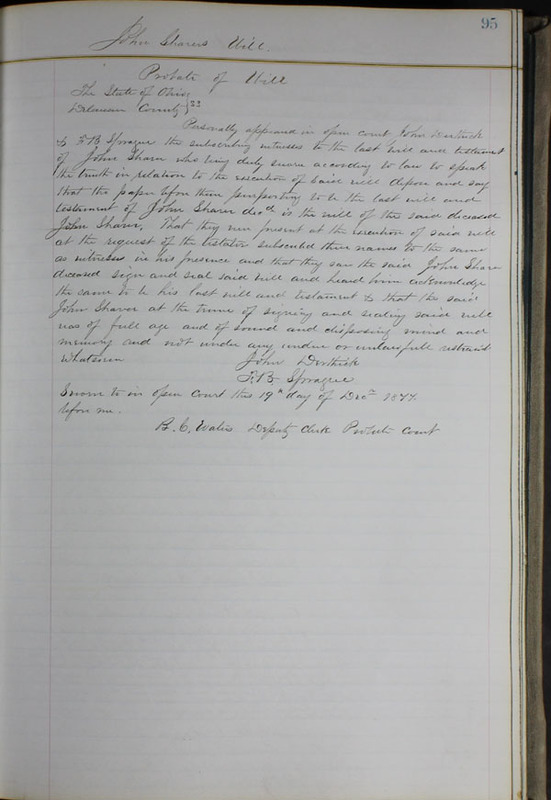 95
John Sharers Will.
Probate of Will
The State of Ohio
Delaware County } ss
Personally appeared in open court John
& F. B. Sprague the subscribing witnesses to the last will and testament
of John Sharer who being duly sworn according to law to speak
the truth in relation to the execution of said will depose and say
that the paper before them purporting to be the last will and
testament of John Sharer decd is the will of the said deceased
John Sharer. That they were present at the execution of said will
at the request of the testator subscribed their names to the same
as witnesses in his presence and that they saw the said John Sharer
deceased sign and seal said will and heard him acknowledge
the same to be his last will and testament & that the said
John Sharer at the time of signing and sealing said will
was of full age and of sound and disposing mind and
memory and not under any undue or unlawfull restraint
whatsoever John
F. B. Sprague
Sworn to in open Court this 19th day of Dec 1877
before me.
B. C. Waters Deputy Clerk Probate Court